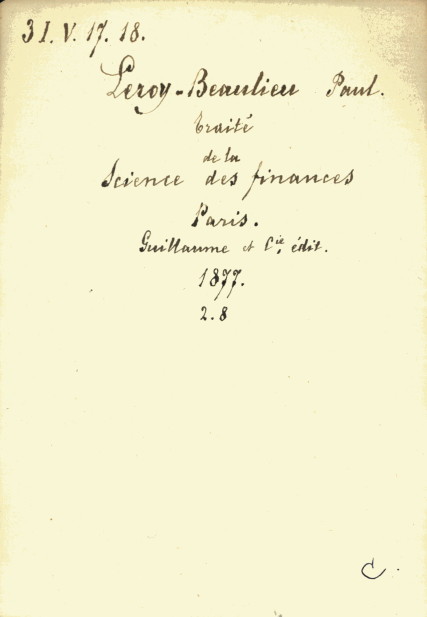 3 I. V. 17. 18.
Leroy-Beaulieu Paul.
traité
de la
Science des finances
Paris.
Guillaume et Cie, édit.
1877.
2. 8
C.